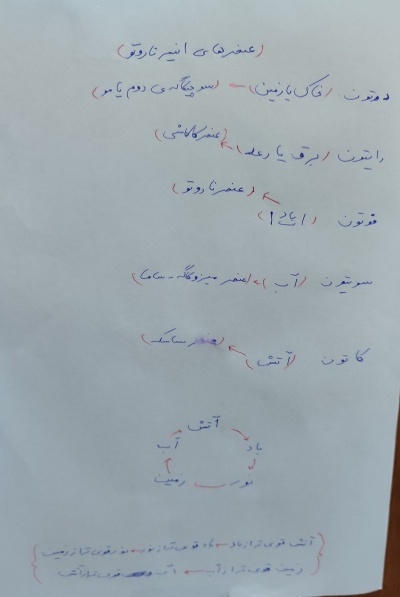 (عنصرهای انیمه ناروتو)
دوتون (خاک یا زمین) ← (سوچیگاکه‌ی دوم یا مو)
رایتون (برق یا رعد) ← (عنصر کاکاشی)
فوتون (باد) ← (عنصر ناروتو)
سویتون (آب) ← (عنصر میزوکاگه - ساما)
کاتون (آتش) ← (عنصر ساسکه)
آتش
آب باد
زمین نور
آتش قوی تر از باد ← باد قوی تر از نور ← نور قوی تر از زمین
زمین قوی تر از آب ← آب قوی تر از آتش